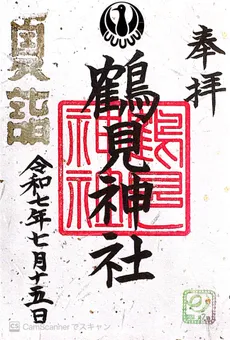 奉拝
鶴見神社
鶴見
神社
貝塚
令和七年七月十五日
CS CamScanner でスキャン